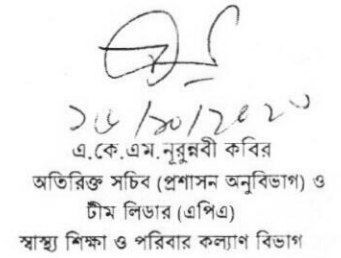 এ.কে.এম.নূরুন্নবী কবির
অতিরিক্ত সচিব (প্রশাসন অনুবিভাগ) ও
টীম লিডার (এপিএ)
স্বাস্থ্য শিক্ষা ও পরিবার কল্যাণ বিভাগ